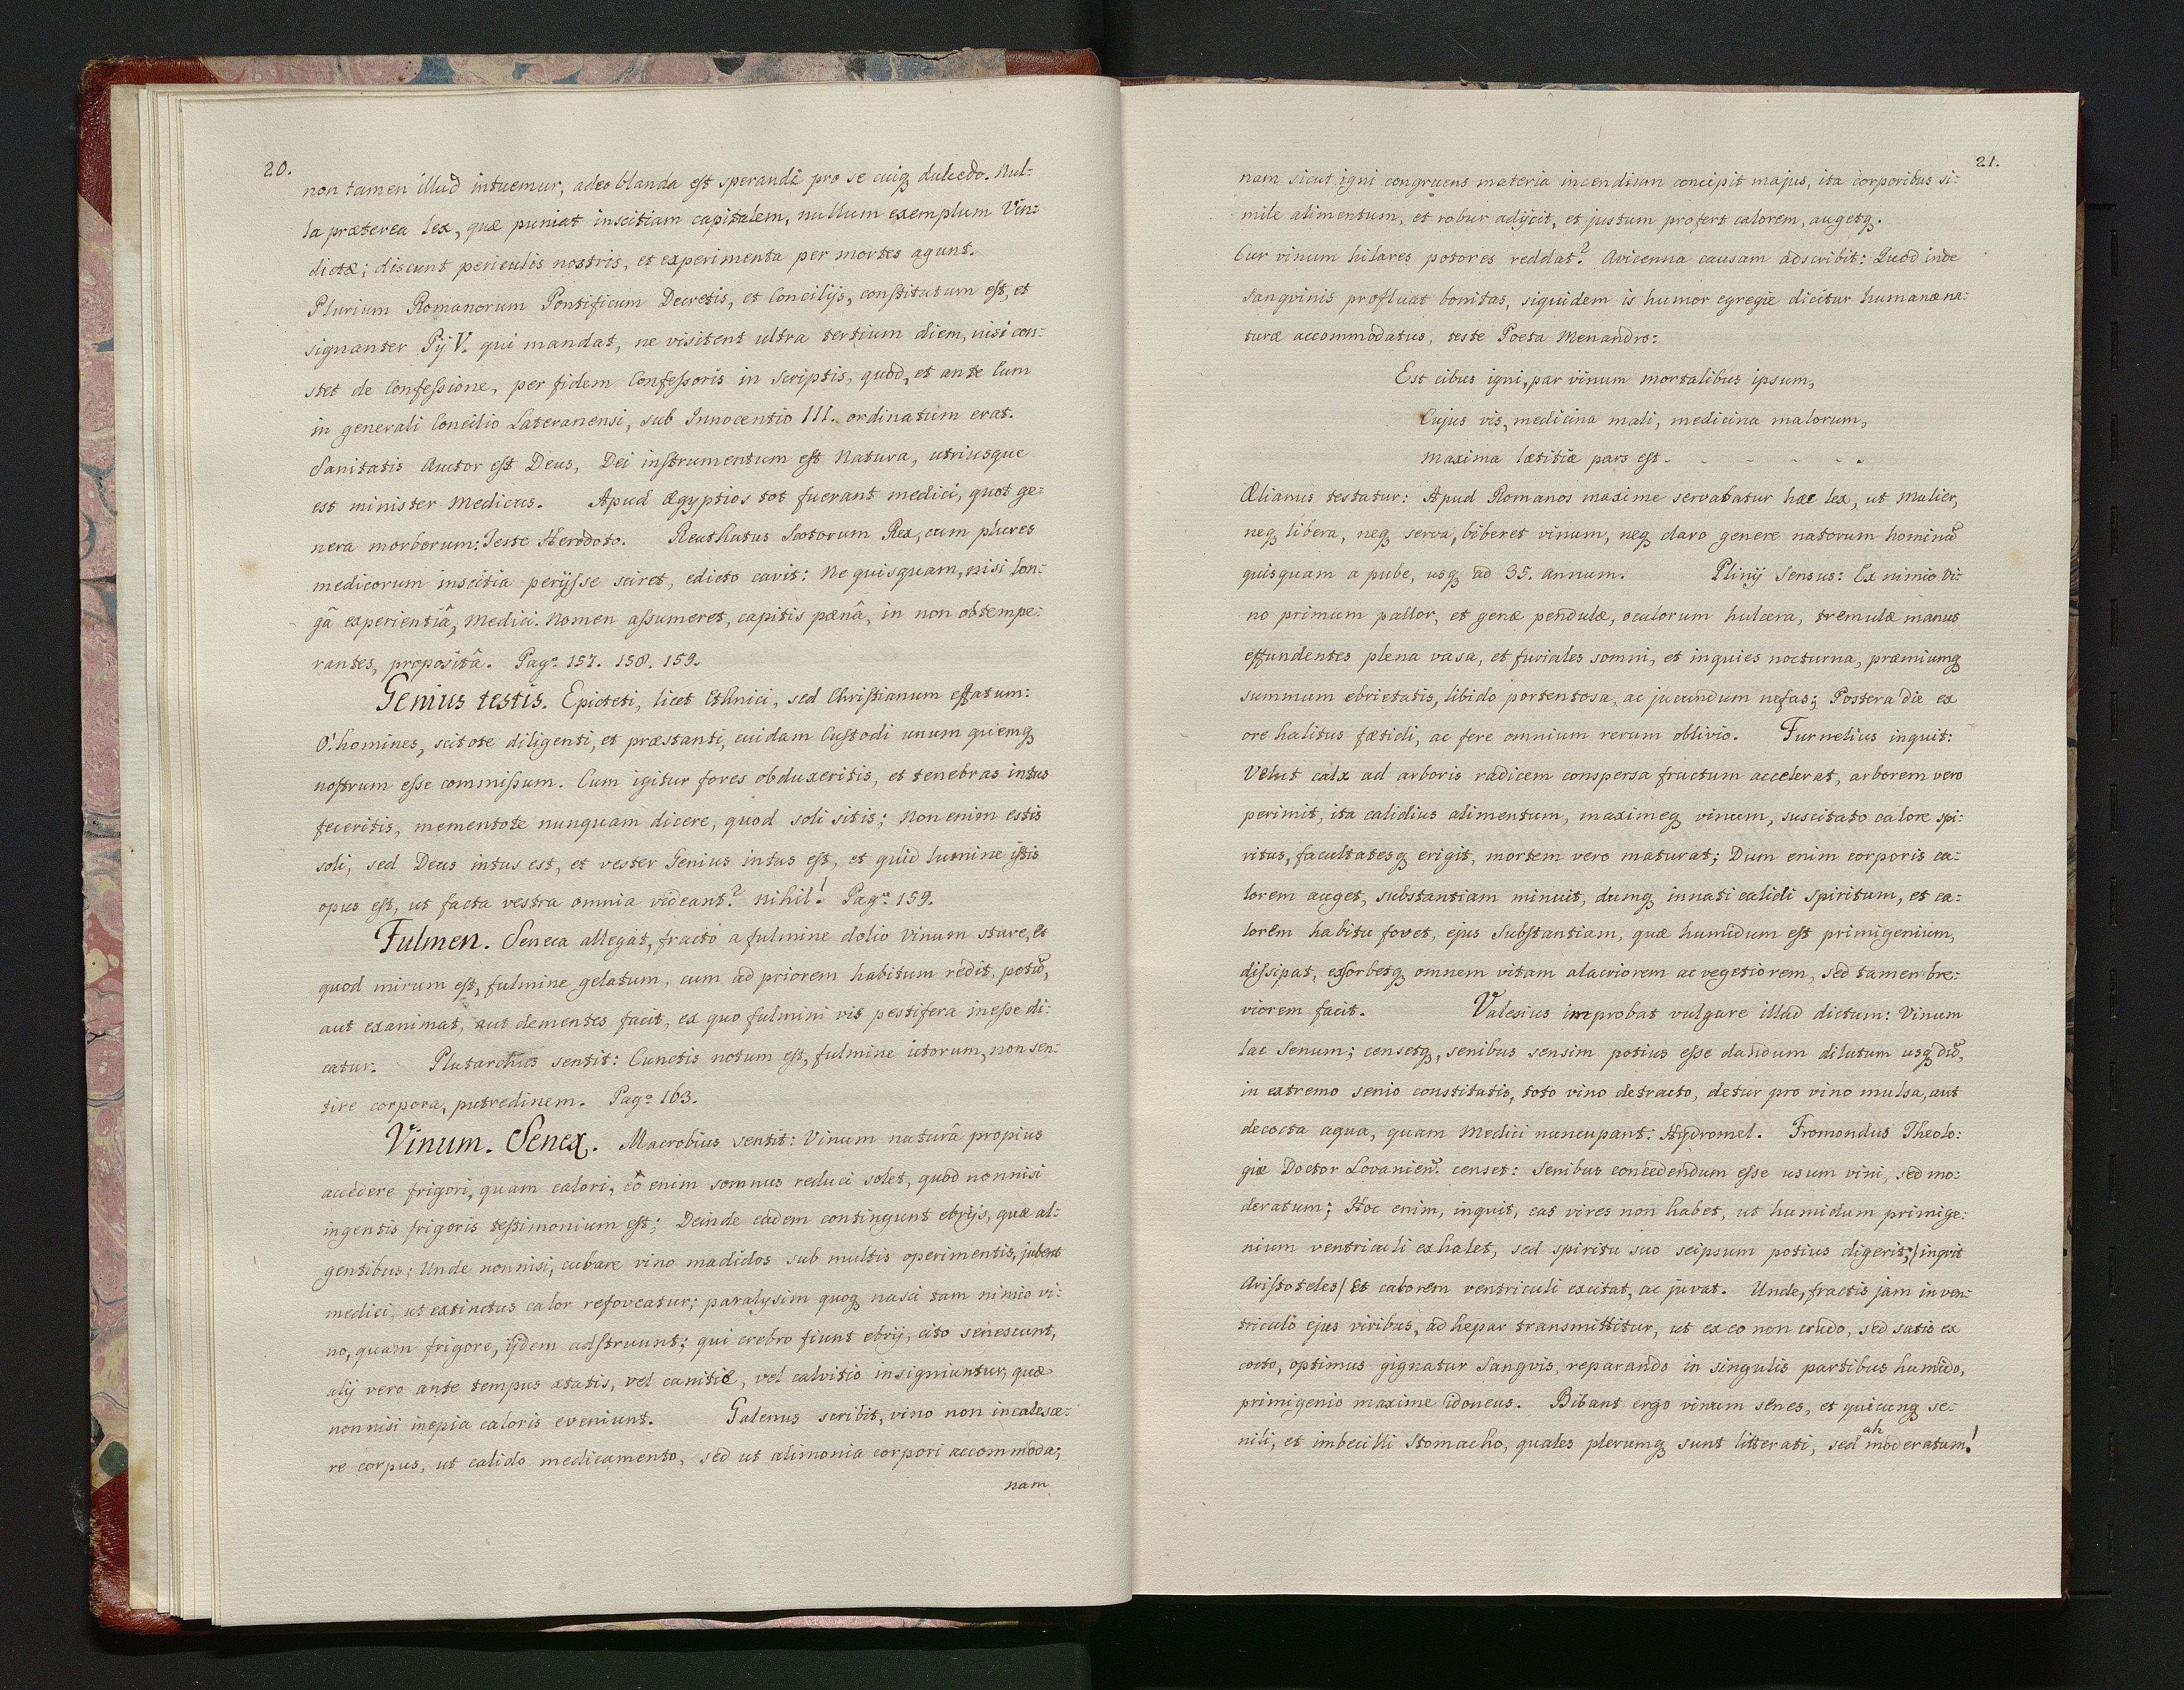 20.
non tamen illud intuemur, adeo blanda est sperandi pro se cuiq; dulcedo. Nul-
la præterea lex, quæ puniat inscitiam capitalem, nullum exemplum Vin-
dictæ; discunt periculis nostris, et experimenta per mortes agunt.
Plurium Romanorum Pontificum Decretis, et Concilijs, constitutum est, et
signanter Pij V. qui mandat, ne visitent ultra tertium diem, nisi con-
stet de Confessione, per fidem Confessoris in scriptis, quod, et ante Cum
in generali Concilio Lateranensi, sub Innocentio III. ordinatum erat.
Sanitatis Auctor est Deus, Dei instrumentum est Natura, utriusque
est minister Medicus. Apud Ægyptios tot fuerant medici, quot ge-
nera morborum: Teste Herodoto. Reuthatus Scotorum Rex, cum plures
medicorum inscitia perijsse sciret, edicto cavit: Ne quisquam, nisi lon-
gâ experientiâ, Medici Nomen assumeret, capitis pænâ, in non obtempe-
rantes, propositâ. Pag: 157. 158. 159.
Genius testis. Epicteti, licet Ethnici, sed Christianum effatum:
O! homines, scitote diligenti, et præstanti, cuidam Custodi unum quemq;
nostrum esse commissum. Cum igitur fores obduxeritis, et tenebras intus
feceritis, mementote nunquam dicere, quod soli sitis; Non enim estis
soli, sed Deus intus est, et vester Genius intus est, et quid lumine istis
opus est, ut facta vestra omnia videant? nihil! Pag: 159.
Fulmen. Seneca allegat, fracto a fulmine dolio Vinum stare, et
quod mirum est, fulmine gelatum, cum ad priorem habitum redit, potũ,
aut exanimat, aut dementes facit, ex quo fulmini vis pestifera inesse di-
catur. Plutarchus sentit: Cunctis notum est, fulmine ictorum, non sen-
tire corpora, putredinem. Pag: 163.
Vinum. Senex. Macrobius sentit: Vinum naturâ propius
accedere frigori, quam calori, eô enim somnus reduci solet, quod nonnisi
ingentis frigoris testimonium est; Deinde eadem contingunt ebrijs, quæ al-
gentibus; Unde nonnisi, cubare vino madidos sub multis operimentis, jubent
medici, ut extinctus calor refoveatur; paralysim quoq; nasci tam nimio vi-
no, quam frigore, ijdem adstruunt; qui crebro fiunt ebrij, cito senescunt,
alij vero ante tempus ætatis, vel canitie, vel calvitio insigniuntur, quæ
nonnisi inopia caloris eveniunt. Galenus scribit, vino non incalesce-
re corpus, ut calido medicamento, sed ut alimonia corpori accommoda;
nam
21.
nam sicut igni congruens materia incendium concipit majus, ita corporibus si-
mile alimentum, et robur adijcit, et justum profert calorem, augetq;.
Cur vinum hilares potores reddat? Avicenna causam adscribit: Quod inde
sangvinis profluat bonitas, siquidem is humor egregie dicitur humanæ na-
turæ accommodatus, teste Poeta Menandro:
Est cibus igni, par vinum mortalibus ipsum,
Cujus vis, medicina mali, medicina malorum,
Maxima lætitiæ pars est - - - - - -
Ælianus testatur: Apud Romanos maxime servabatur hæc lex, ut Mulier,
neq; libera, neq; serva, biberet vinum, neq; claro genere natorum hominũ
quisquam a pube, usq; ad 35. annum. Plinij Sensus: Ex nimio Vi-
no primum pallor, et genæ pendulæ, oculorum hulcera, tremulæ manus
effundentes plena vasa, et furiales somni, et inquies nocturna, præmiumq;
summum ebrietatis, libido portentosa, ac jucundum nefas; Postera die ex
ore halitus fætidi, ac fere omnium rerum oblivio. Furnelius inquit:
Velut calx ad arboris radicem conspersa fructum accelerat, arborem vero
perimit, ita calidius alimentum, maximeq; vinum, suscitato calore spi-
ritus, facultatesq; erigit, mortem vero maturat; Dum enim corporis ca-
lorem auget, substantiam minuit, dumq; innati calidi Spiritum, et ca-
lorem habitu fovet, ejus Substantiam, quæ humidum est primigenium,
dissipat, exsorbetq; omnem vitam alacriorem ac vegetiorem, sed tamen bre-
viorem facit. Valesius improbat vulgare illud dictum: Vinum
lac Senum; censetq;, senibus sensim potius esse dandum dilutum usq; dũ,
in extremo senio constitutis, toto vino detracto, detur pro vino mulsa, aut
decocta aqua, quam Medici nuncupant: Hydromel. Fromondus Theolo-
giæ Doctor Lovanien: censet: Senibus concedendum esse usum vini, sed mo-
deratum; Hoc enim, inquit, eas vires non habet, ut humidum primige-
nium ventriculi exhalet, sed spiritu suo seipsum potius digerit; / inqvit
Aristoteles / Et calorem ventriculi excitat, ac juvat. Unde, fractis jam in ven-
triculô ejus viribus, ad hepar transmittitur, ut ex eo non crudo, sed satis ex
cocto, optimus gignatur Sangvis, reparando in singulis partibus humido,
primigenio maxime idoneus. Bibant ergo vinum senes, et quicunq; se-
nili, et imbecilli Stomacho, quales plerumq; sunt litterati, sed ah moderatum!